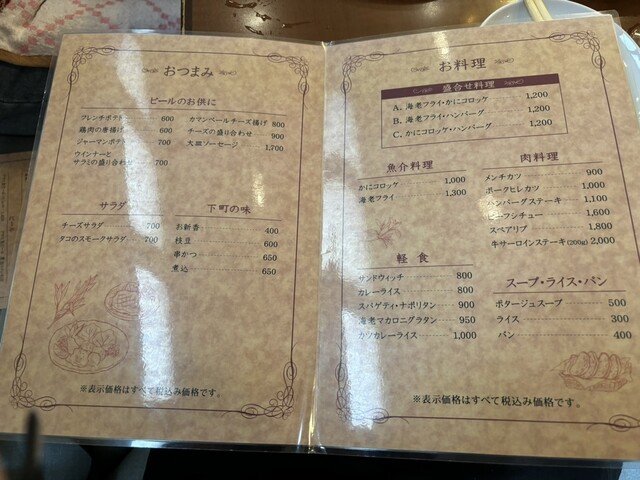 おつまみ
ビールのお供に
フレンチポテト 600
鶏肉の唐揚げ 600
ジャーマンポテト 700
ウインナーと
サラミの盛り合わせ 700
カマンベールチーズ揚げ 800
チーズの盛り合わせ 900
大皿ソーセージ 1,700
サラダ
チーズサラダ 700
タコのスモークサラダ 700
下町の味
お新香 400
枝豆 600
串かつ 650
煮込 650
※表示価格はすべて税込み価格です。
お料理
盛合せ料理
A. 海老フライ・かにコロッケ 1,200
B. 海老フライ・ハンバーグ 1,200
C. かにコロッケ・ハンバーグ 1,200
魚介料理
かにコロッケ 1,000
海老フライ 1,300
肉料理
メンチカツ 900
ポークヒレカツ 1,000
ハンバーグステーキ 1,100
ビーフシチュー 1,600
スペアリブ 1,800
牛サーロインステーキ(200g) 2,000
軽食
サンドウィッチ 800
カレーライス 800
スパゲティ・ナポリタン 900
海老マカロニグラタン 950
カツカレーライス 1,000
スープ・ライス・パン
ポタージュスープ 500
ライス 300
パン 400
※表示価格はすべて税込み価格です。